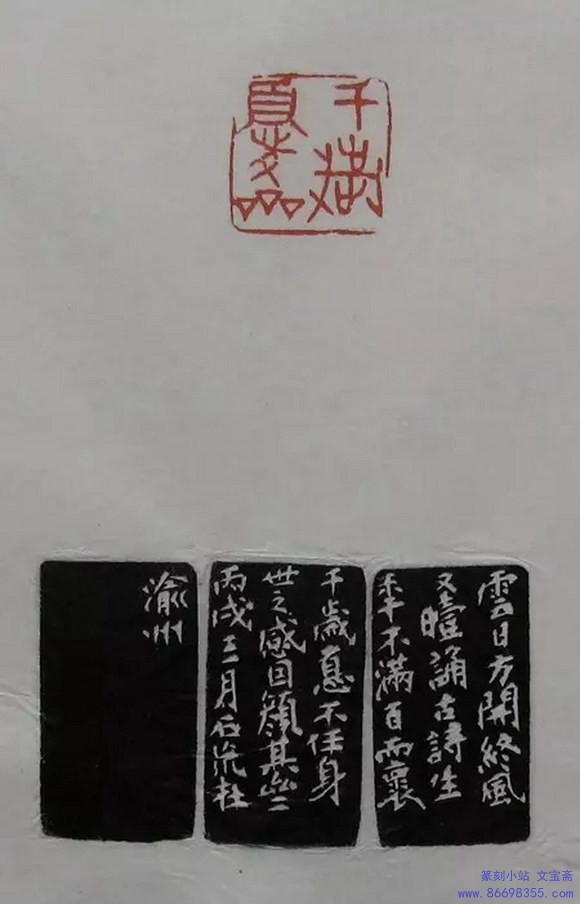 千歲
憂齋
雲日方開終風
又曀誦古詩生
秊不滿百而褱
千歲憂不任身
世之感因顏其
丙戌三月石
渝州
篆刻小站 文宝斋
www.86698355.com